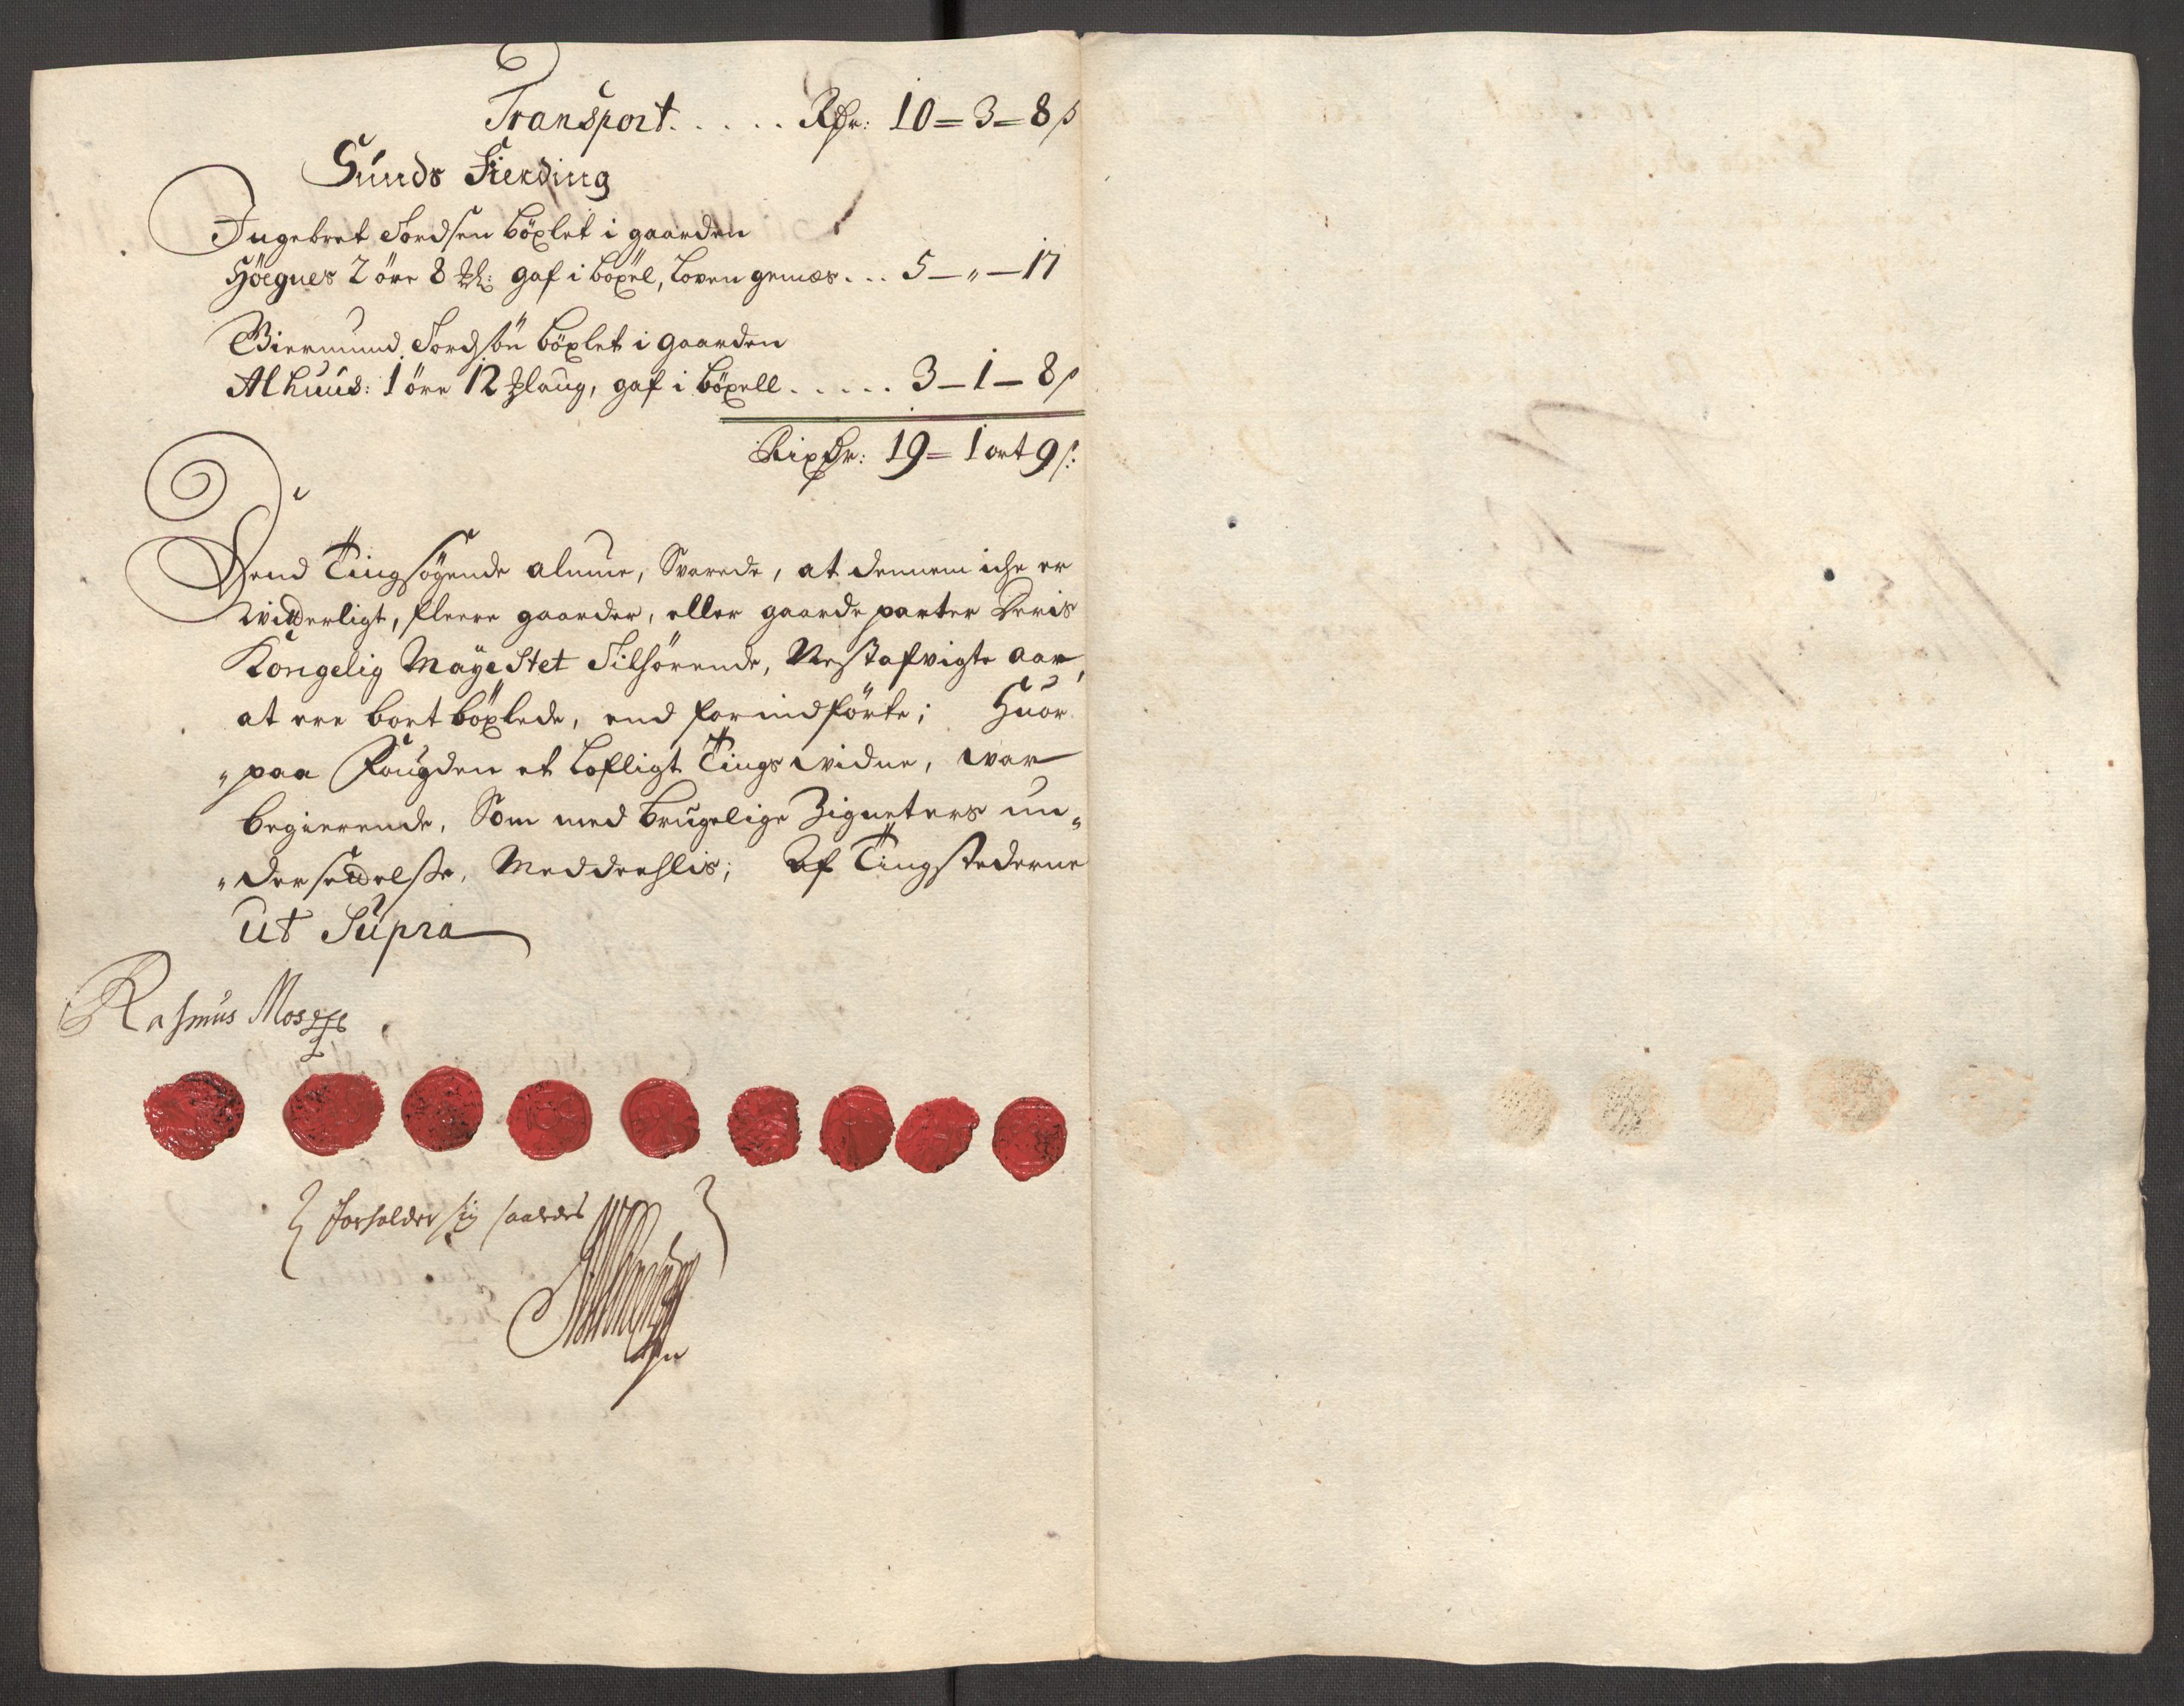 Transport. . . . . Rdr: 10 = 3 = 8 ß
Sunds Fierding
Ingebret Tordsen böxlet i gaarden
Höegnes 2 öre 8 Pd: gaf i böxel, Loven gemæs. . . 5 – " – 17
Giermund Tordsön böxlet i gaarden
Alhuus: 1 öre 12 Plaug, gaf i böxell. . . . . . 3 – 1 – 8 ß
Rixdr: 19 = 1 ort 9 ß:
Dend Tingsögende almue, Svarede, at dennem iche er
widerligt, fleere gaarder, eller gaarde parter Deris
Kongelig Mayestet Tilhörende, Nest afvigte aar,
at ere bort böxlede, end forindförte; Huor
"paa Fougden et Lofligt Tings widne, war
begierende, Som med brugelige Zigneters un„
"der , Meddeehlis; Af Tingstederne
ut Supra
Rasmus
forholder sig saaledes